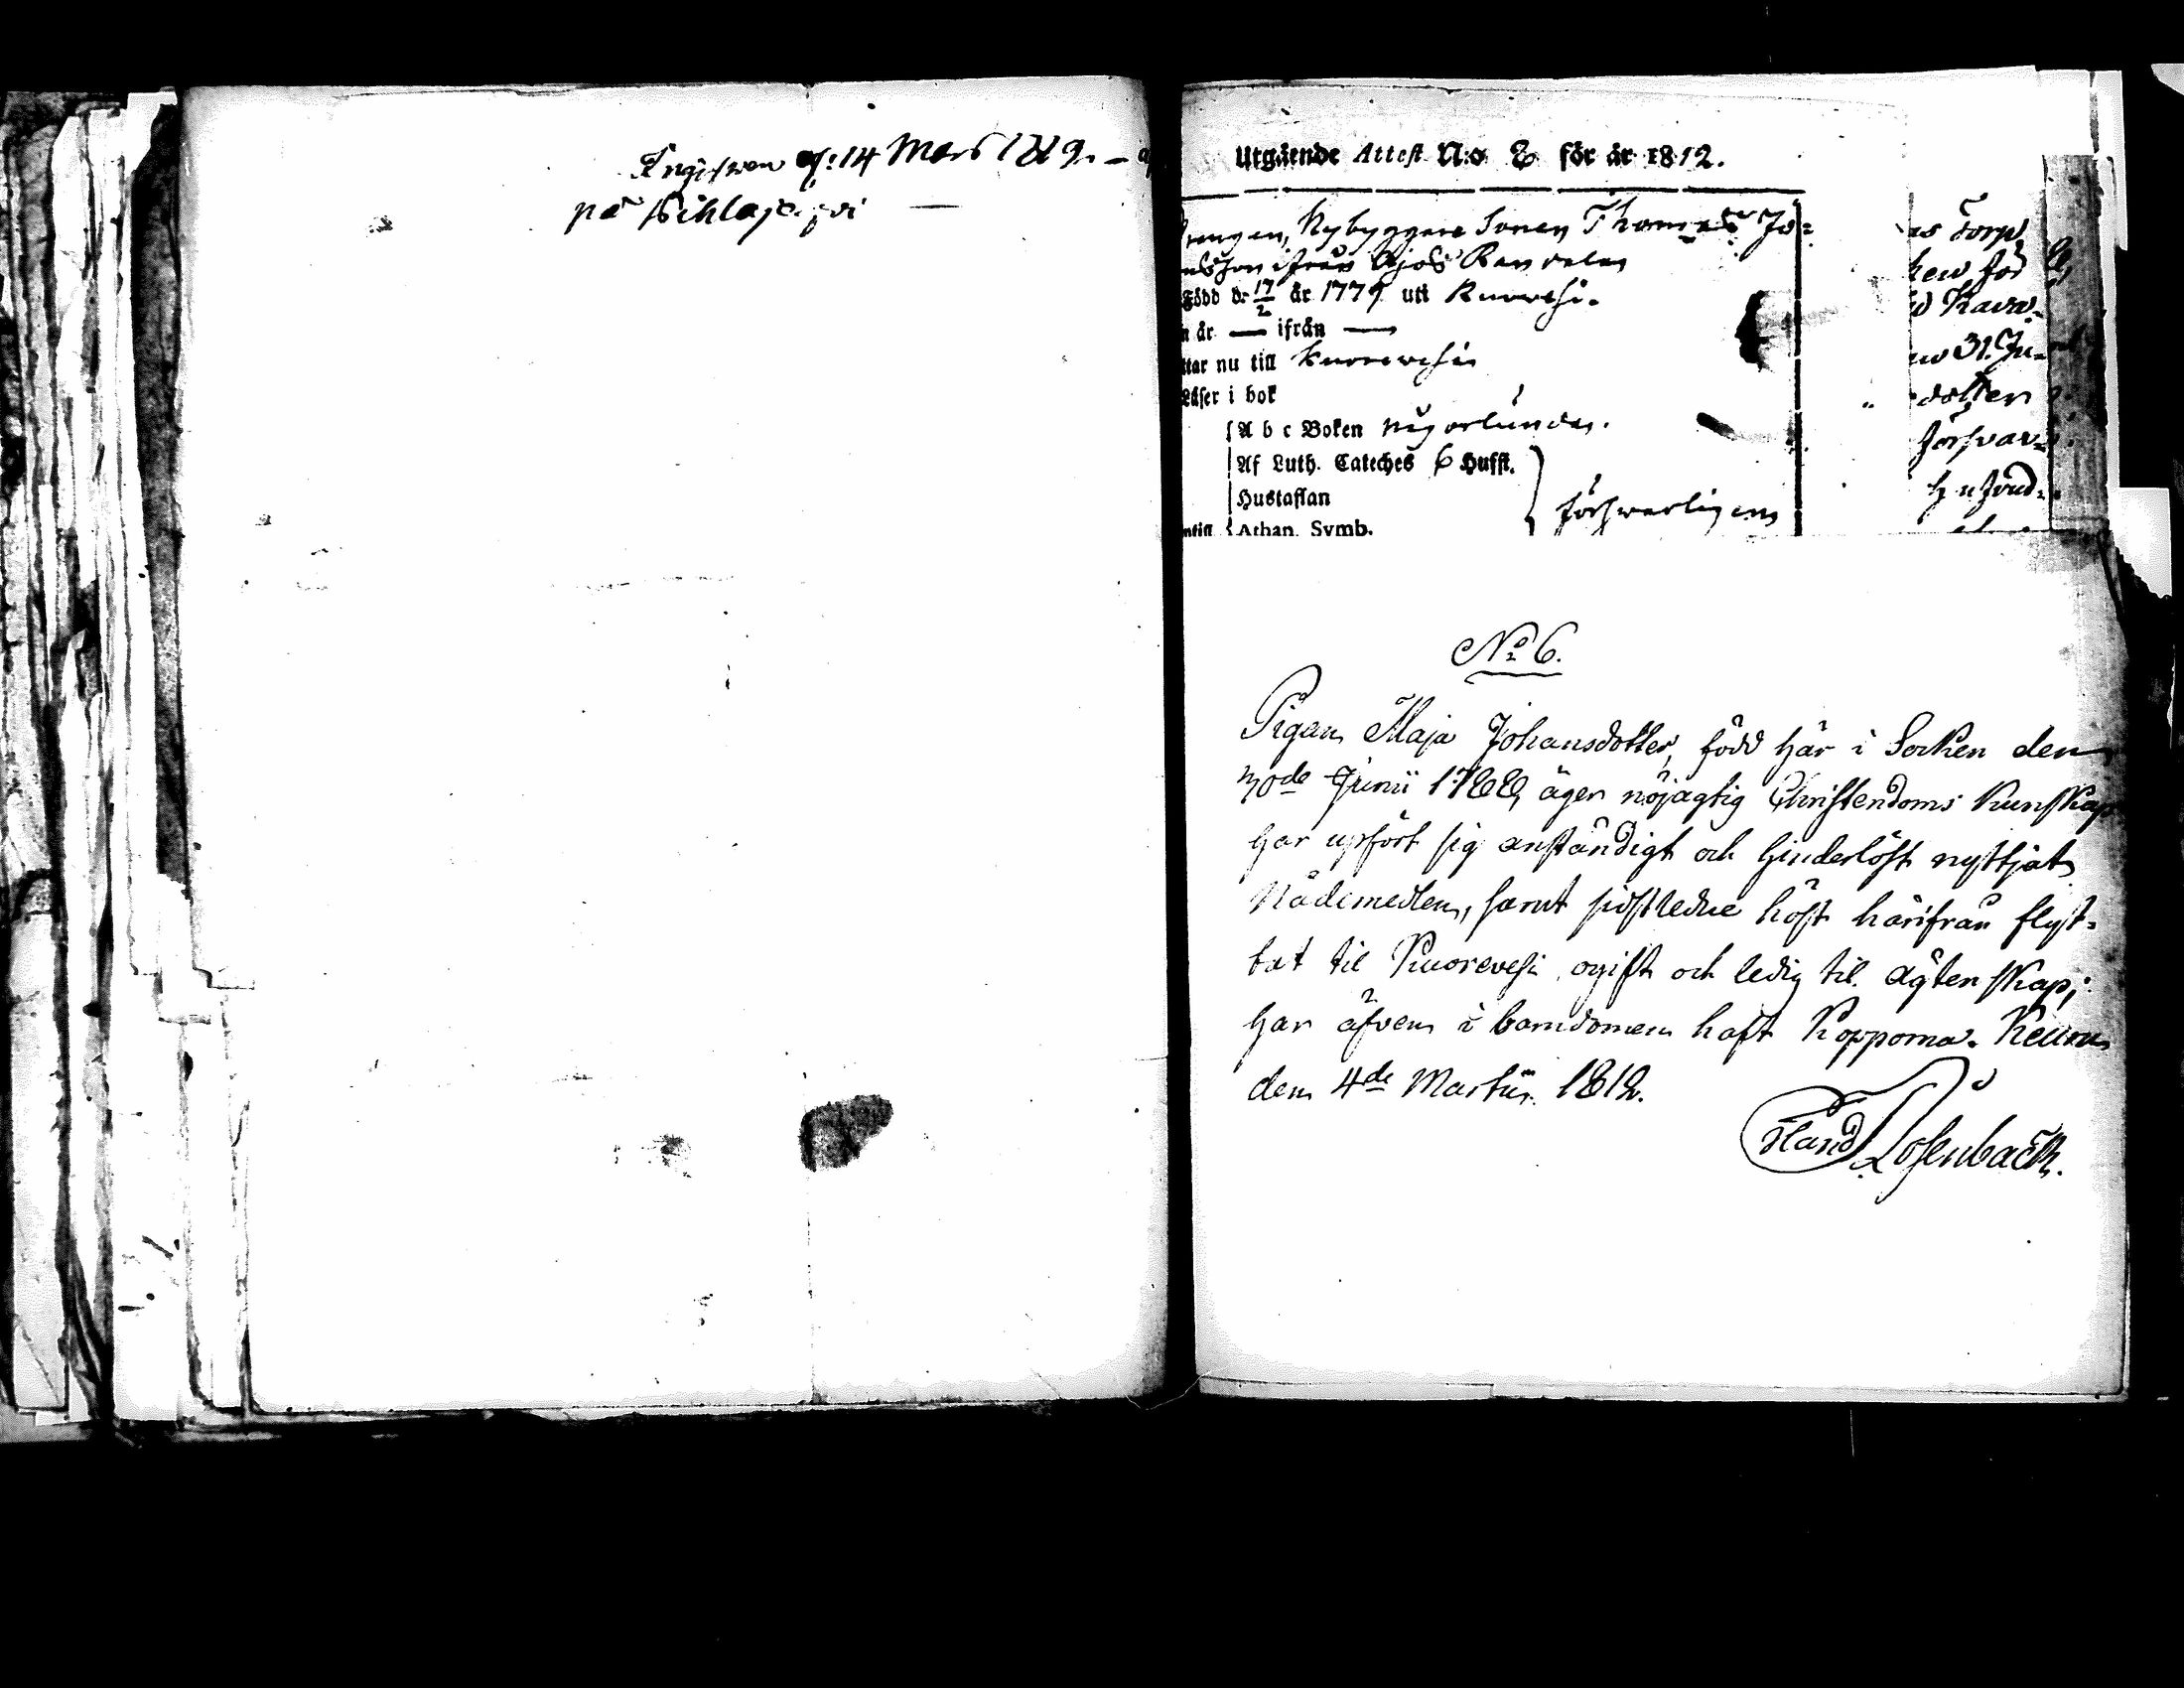 Ingifwen d: 14 Mars 1812. —
på Pihlajaxvi —
Utgående Attest N:o 8 för år 1812.
Drengen, Nybyggare Sonen Thomas Jo=
Född d. 17/2 år 1779 uti Kuorehvesi.
n år — ifrån —
ttar nu till Kuorevesi
Läser i bok
A b c Boken någorlunda.
Af Luth. Cateches 6 Hufst.
Hustaflan
försvarligen
ntill Athan. Symb.
Torp
född
31. Ju=
dotter
försvar=
No 6.
Pigan Maja Johansdotter, född här i Socken den
30de Junii 1788, äger nöjagtig Christendoms Kunskap
har upfört sig anständigt och hinderlöst nyttjat
Nådemedlen, samt sidstledne höst härifrån flyt=
tat til Kuorevesi, ogift och ledig til ägtenskap;
har äfven i barndomen haft Koppoma. Keuru
den 4de Martii 1812.
Losenback.